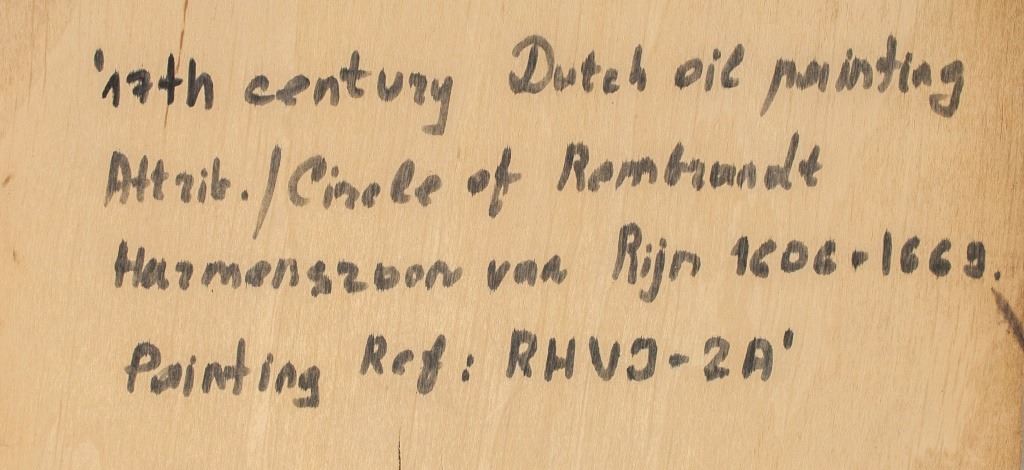 '17th century Dutch oil painting
Attrib./Circle of Rembrandt
Harmenszoon van Rijn 1606-1669.
Painting Ref: RHVJ-2A'